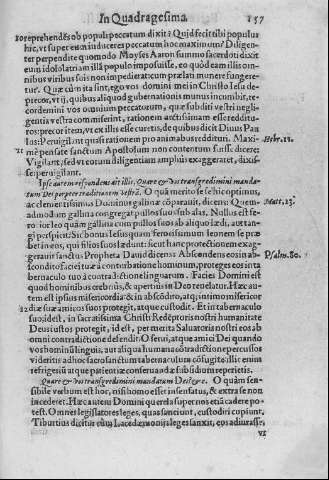 In Quadragesima. 157
20 reprehendēs ob populi peccatum dixit? Quid fecit tibi populus
hic, vt super eum induceres peccatum hoc maximum? Diligen-
ter perpendite quomodo Moyses Aaron summo sacerdoti dixit
eum idololatriam illā populo imposuisse, eo quòd eam illis om-
nibus viribus suis non impedierat cum prælati munere fungere-
tur. Quæ cùm ita sint, ego vos domini mei in Christo Iesu de-
precor, vt ij, quibus aliquod gubernationis munus incumbit, re-
cordemini vos omnium peccatorum, quæ subditi vestri negli-
gentia vestra commiserint, rationem arctissimam esse reddituros:
precor item, vt ex illis esse curetis, de quibus dicit Diuus Pau
lus: Peruigilant quasi rationem pro animabus reddituri. Maxi- Hebr.13.
21 mè pensate sanctum Apostolum non contentum fuisse dicere:
Vigilant, sed vt eorum diligentiam amplius exaggeraret, dixis-
se: peruigilant.
Ipse autem respondens ait illis, Quare & vos transgredimini manda-
tum Dei propter traditionem vestrā. O quā meritò se se hic optimus,
ac clementissimus Dominus gallinæ cōparauit, dicens: Quem- Matt.23.
admodum gallina congregat pullos suos sub alas. Nullus est fe-
rior leo quàm gallina cum pullos suos ab aliquo lædi, aut tan-
gi perspicit: Sic bonus Iesus quàm ferocissimum leonem se præ
bet in eos, qui filios suos lædunt: sicut hanc protectionem exag-
gerauit sanctus Propheta Dauid dicens: Abscondens eos in ab- Psalm.30.
scondito faciei tuæ à conturbatione hominum, proteges eos in ta
bernaculo tuo à contradictione linguarum. Facies Domini est
quod hominibus crebriùs, & apertius in Deo reuelatur. Hæc au-
tem est ipsius misericordia & in abscōdito, atq; intimo misericor
22 diæ suæ amicos suos protegit, atque custodit. Et in tabernaculo
suo, id est, in sacratissima Christi Redēptoris nostri humanitate
Deus iustos protegit, id est, per merita Saluatoris nostri eos ab
omni contradictione defendit. O serui, atque amici Dei quando
vos hominū linguis, aut aliqua humana cōtradictione percussos
videritis ad hoc sacrosanctum tabernaculum cōfugite: illic enim
refrigerij atque patientiæ conseruandæ subsidium reperietis.
Quare & vos transgredimini mandatum Dei & cę. O quàm sen-
sibile verbum est hoc, nisi homo esset insensatus, & extra se non
incederet. Hæc autem Domini querela super nos etiā cadere po-
test. Omnes legislatores leges, quas sanciunt, custodiri cupiunt.
Tiburtius dicitur cùm Lacedæmonijs leges sanxit, eos adiurasse,
vt